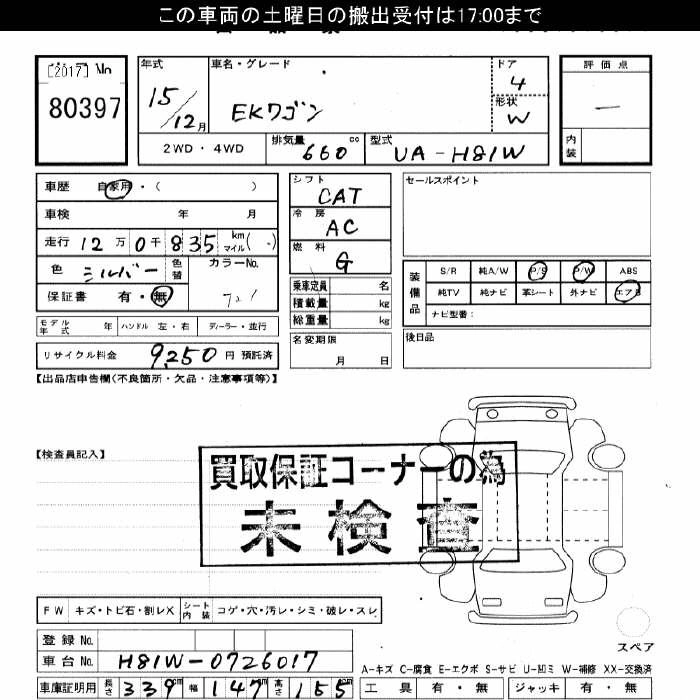 この車両の土曜日の搬出受付は17:00まで
[2017] No
80397
年式 車名・グレード ドア 評価点
15/12月 EKワゴン 4 —
形状 W
2WD・4WD 排気量 660 cc 型式 UA-H81W 内装
車歴 自家用・( )
シフト CAT
セールスポイント
車検 年 月
冷房 AC
走行 12万0千835 km マイル( )
燃料 G
色 シルバー 色替 カラーNo.
保証書 有・無
乗車定員 名
積載量 kg
総重量 kg
装備品 S/R 純A/W P/S P/W ABS
純TV 純ナビ 革シート 外ナビ エアB
ナビ型番:
モデル年式 年 ハンドル 左・右 ディーラー・並行
名変期限 月 日
後日品
リサイクル料金 9,250 円 預託済
【出品店申告欄(不良箇所・欠品・注意事項等)】
【検査員記入】
買取保証コーナーの為
未検査
FW キズ・トビ石・割レX シート内装 コゲ・穴・汚レ・シミ・破レ・スレ
スペア
登録No.
車台No. H81W-0726017
A-キズ C-腐食 E-エクボ S-サビ U-凹ミ W-補修 XX-交換済
車庫証明用 長さ 339cm 幅 147cm 高さ 155cm 工具 有・無 ジャッキ 有・無